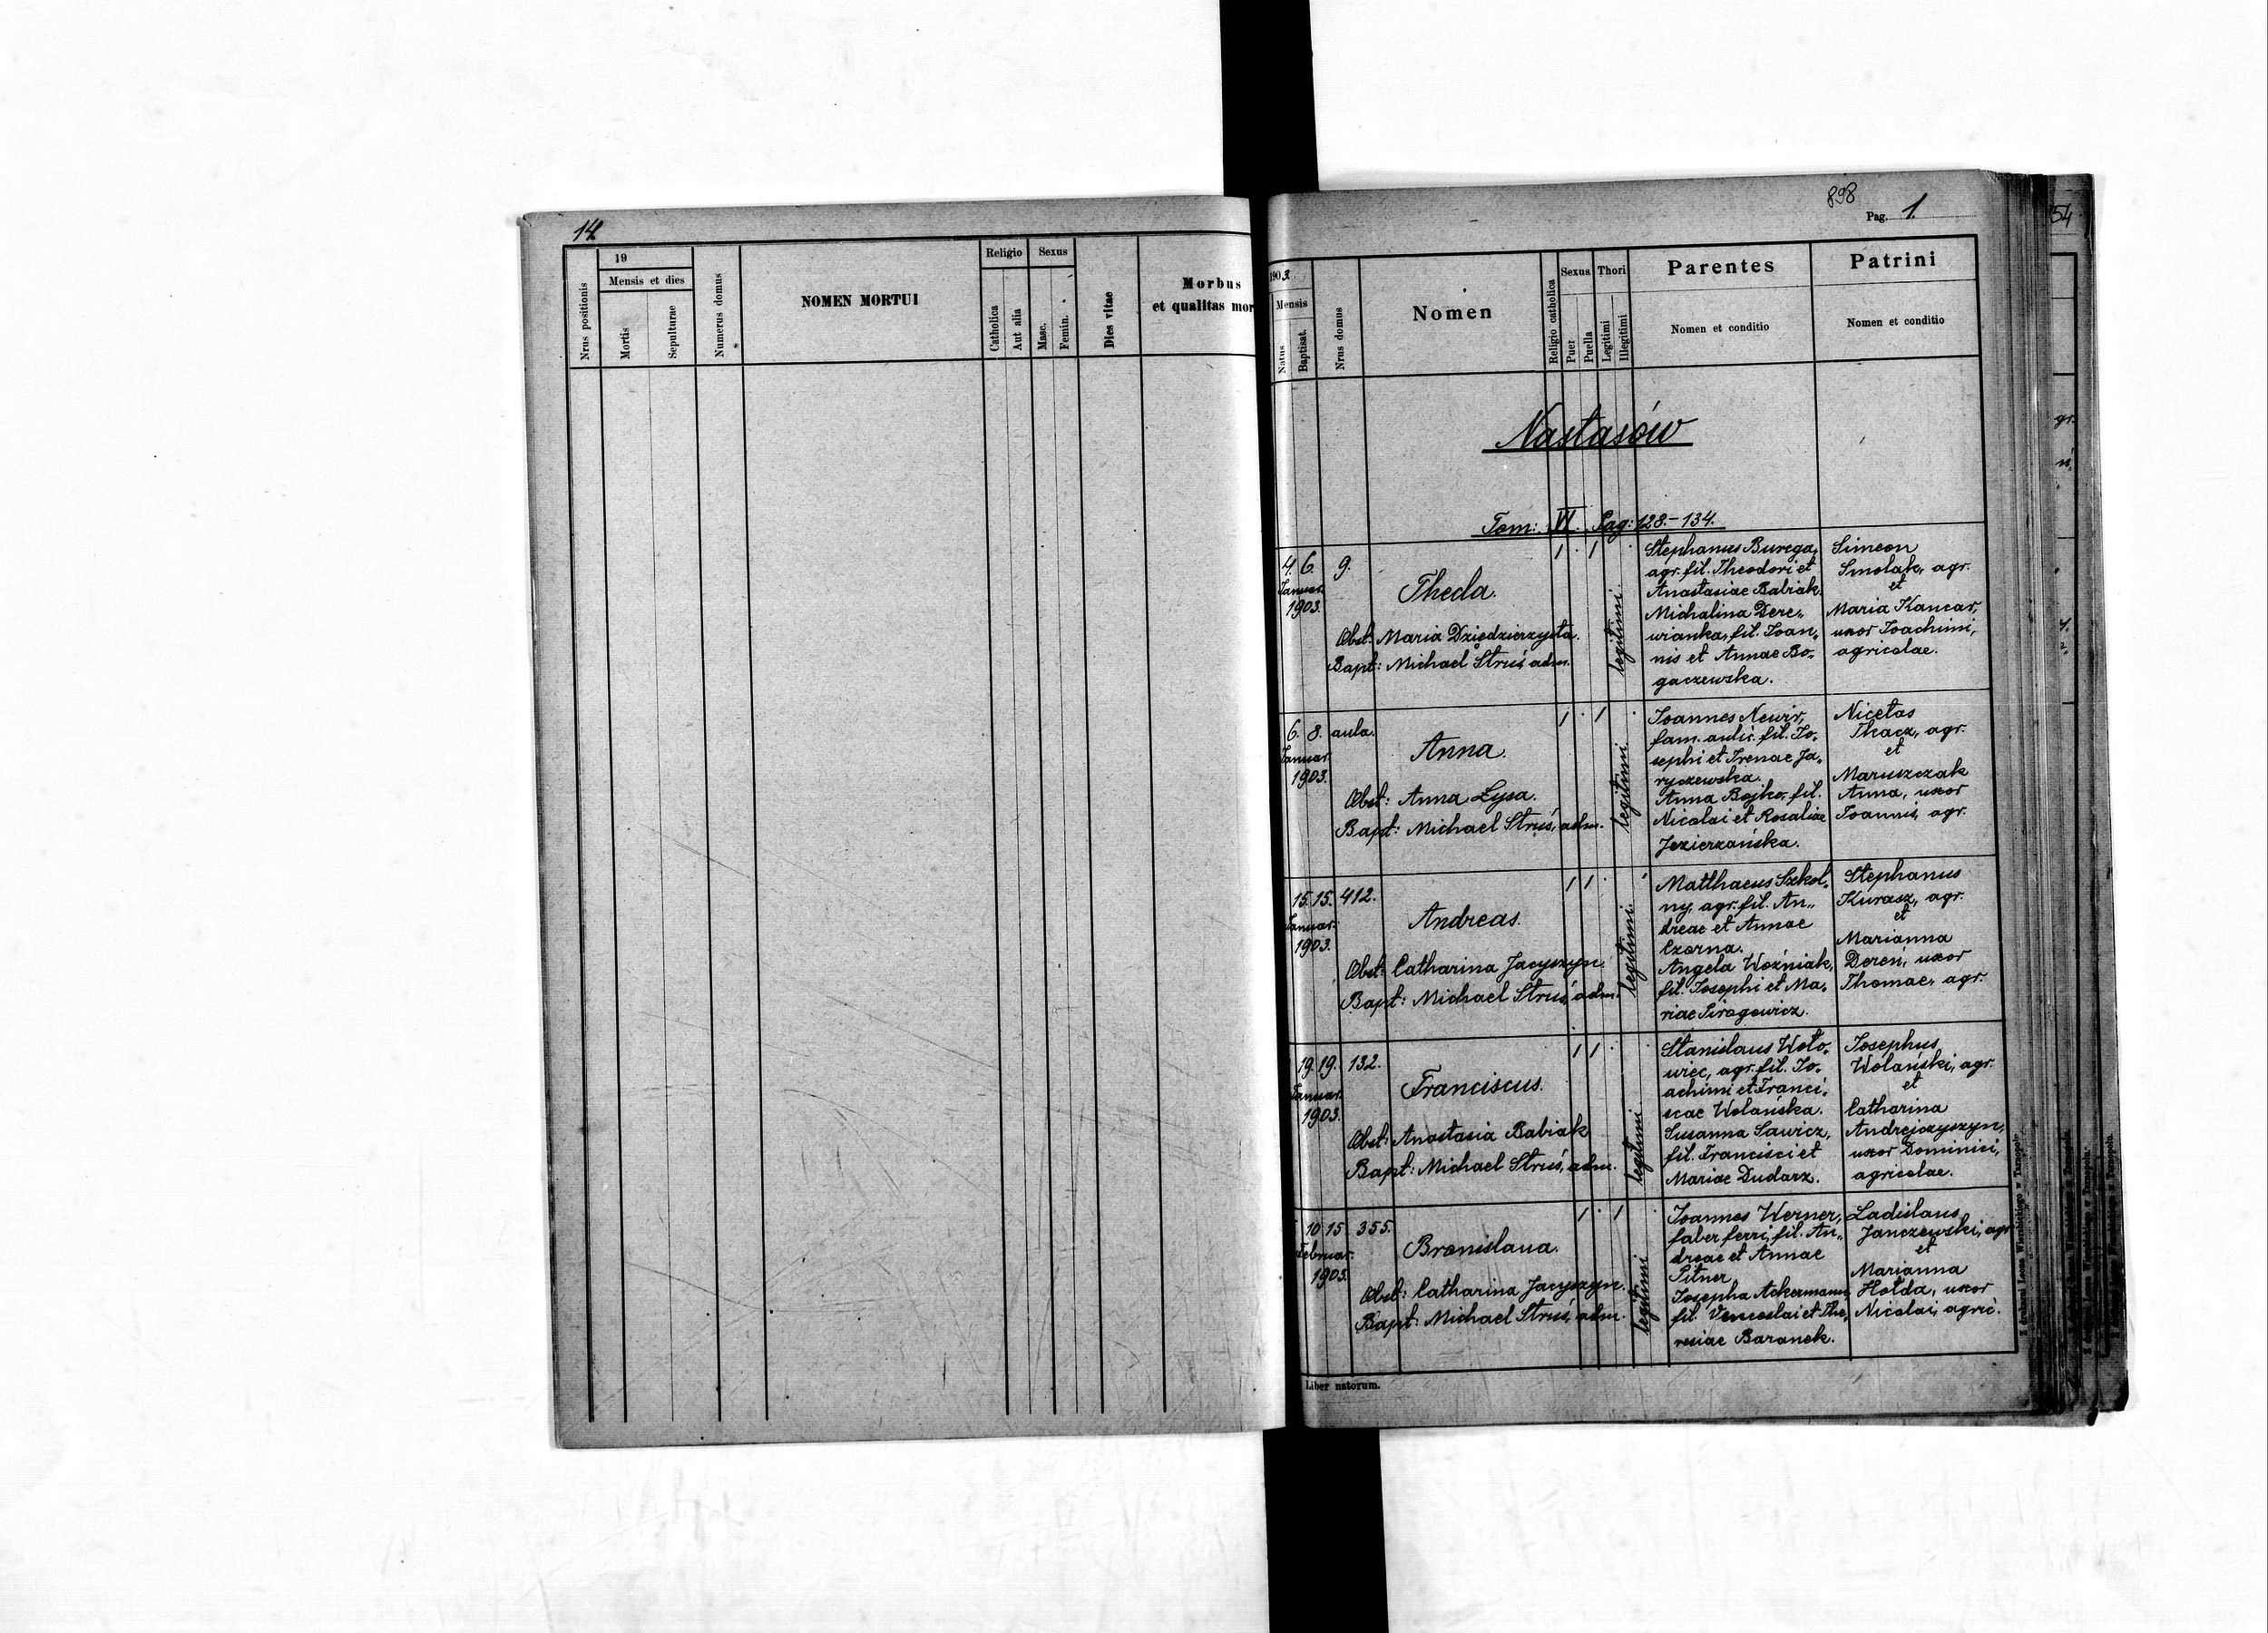 14
19
Religio
Sexus
Mensis et dies
Nrus positionis
Mortis
Sepulturae
Numerus domus
NOMEN MORTUI
Catholica
Aut alia
Masc.
Femin.
Dies vitae
Morbus
et qualitas mor
898
Pag. 1.
54
1903
Mensis
Natus
Baptisat.
Nrus domus
Nomen
Religio catholica
Sexus
Puer
Puella
Thori
Legitimi
Illegitimi
Parentes
Nomen et conditio
Patrini
Nomen et conditio
Nastasów
Tom: VI. Pag: 128.-134.
4. 6. 9.
Januar.
1903.
Thecla.
Obst: Maria Dziedzierzysta.
Bapt: Michael Struś adm.
1 . 1 .
legitimi.
Stephanus Burega,
agr. fil. Theodori et
Anastasiae Babiak.
Michalina Dere„
wianka, fil. Joan„
nis et Annae Bo„
gaczewska.
Simeon
Smolak, agr.
et
Maria Kancar,
uxor Joachimi,
agricolae.
6. 8. aula.
Januar.
1903.
Anna.
Obst: Anna Łysa.
Bapt: Michael Struś, adm.
1 . 1 .
legitimi.
Joannes Newir,
fam. aulic. fil. Jo„
sephi et Irenae Ja„
ryczewska.
Anna Bojko, fil.
Nicolai et Rosaliae
Jezierzańska.
Nicetas
Tkacz, agr.
et
Maruszczak
Anna, uxor
Joannis, agr.
15. 15. 412.
Januar.
1903.
Andreas.
Obst: Catharina Jacyszyn.
Bapt: Michael Struś, adm.
1 1 .
legitimi.
Matthaeus Szkol„
ny, agr. fil. An„
dreae et Annae
Czorna.
Angela Woźniak,
fil. Josephi et Ma„
riae Pirogowicz.
Stephanus
Kurasz, agr.
et
Marianna
Dereń, uxor
Thomae, agr.
19. 19. 132.
Januar.
1903.
Franciscus.
Obst: Anastasia Babiak
Bapt: Michael Struś, adm.
1 1 .
legitimi
Stanislaus Woło„
wiec, agr. fil. Jo„
achimi et Franci„
scae Wolańska.
Susanna Sawicz,
fil. Francisci et
Mariae Dudarz.
Josephus
Wolański, agr.
et
Catharina
Andrejczyszyn,
uxor Dominici,
agricolae.
10 15 355.
Februar.
1903.
Bronislaua.
Obst: Catharina Jacyszyn.
Bapt: Michael Struś, adm.
1 . 1
legitimi
Joannes Werner,
faber ferri, fil. An„
dreae et Annae
Pitner
Josepha Ackermann,
fil. Venceslai et The„
resiae Baranek.
Ladislaus
Janczewski, agr
et
Marianna
Hołda, uxor
Nicolai, agric.
Liber natorum.